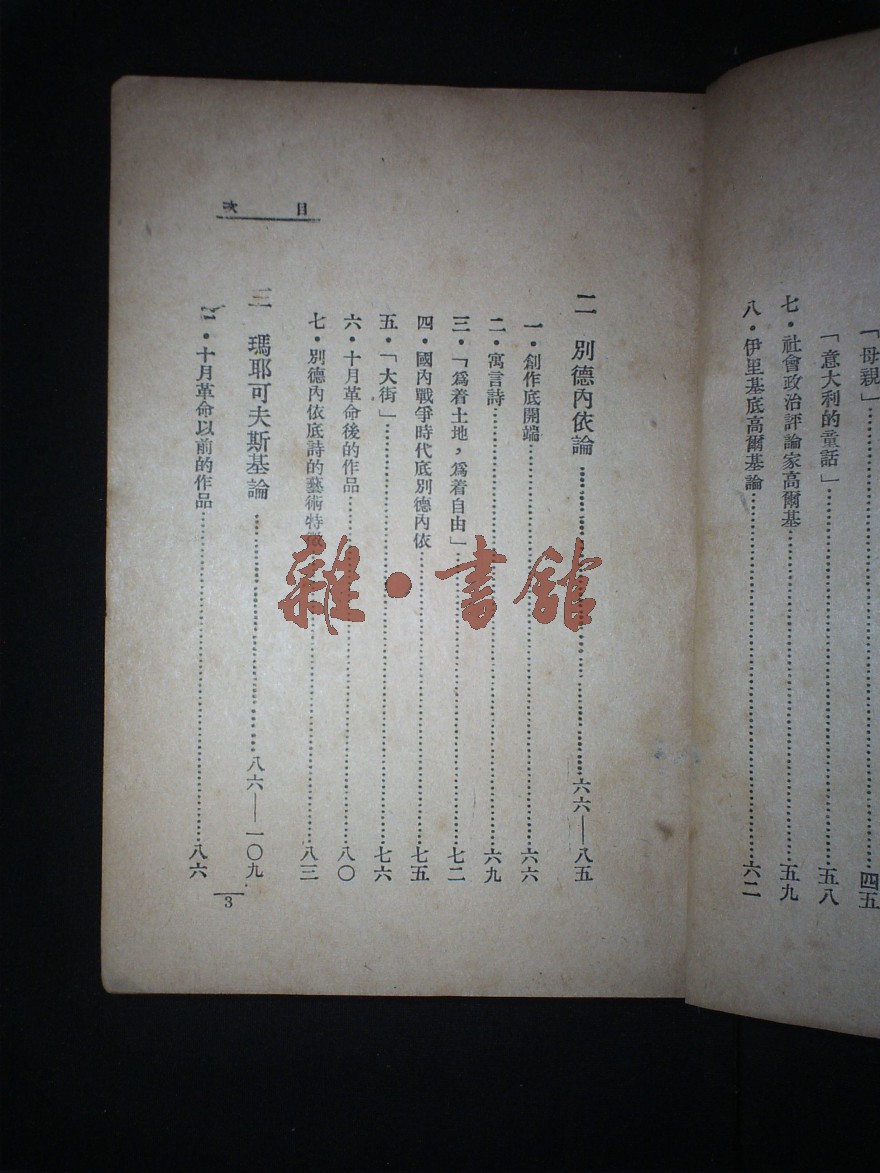 「母親」……四五
「意大利的童話」……五八
七・社會政治評論家高爾基……五九
八・伊里基底高爾基論……六二
目　次
二　別德內依論……六六——八五
一・創作底開端……六六
二・寓言詩……六九
三・「爲着土地，爲着自由」……七二
四・國內戰爭時代底別德內依……七五
五・「大街」……七六
六・十月革命後的作品……八〇
七・別德內依底詩的藝術特徵……八三
三　瑪耶可夫斯基論……八六——一〇九
一・十月革命以前的作品……八六
3
雜・書館